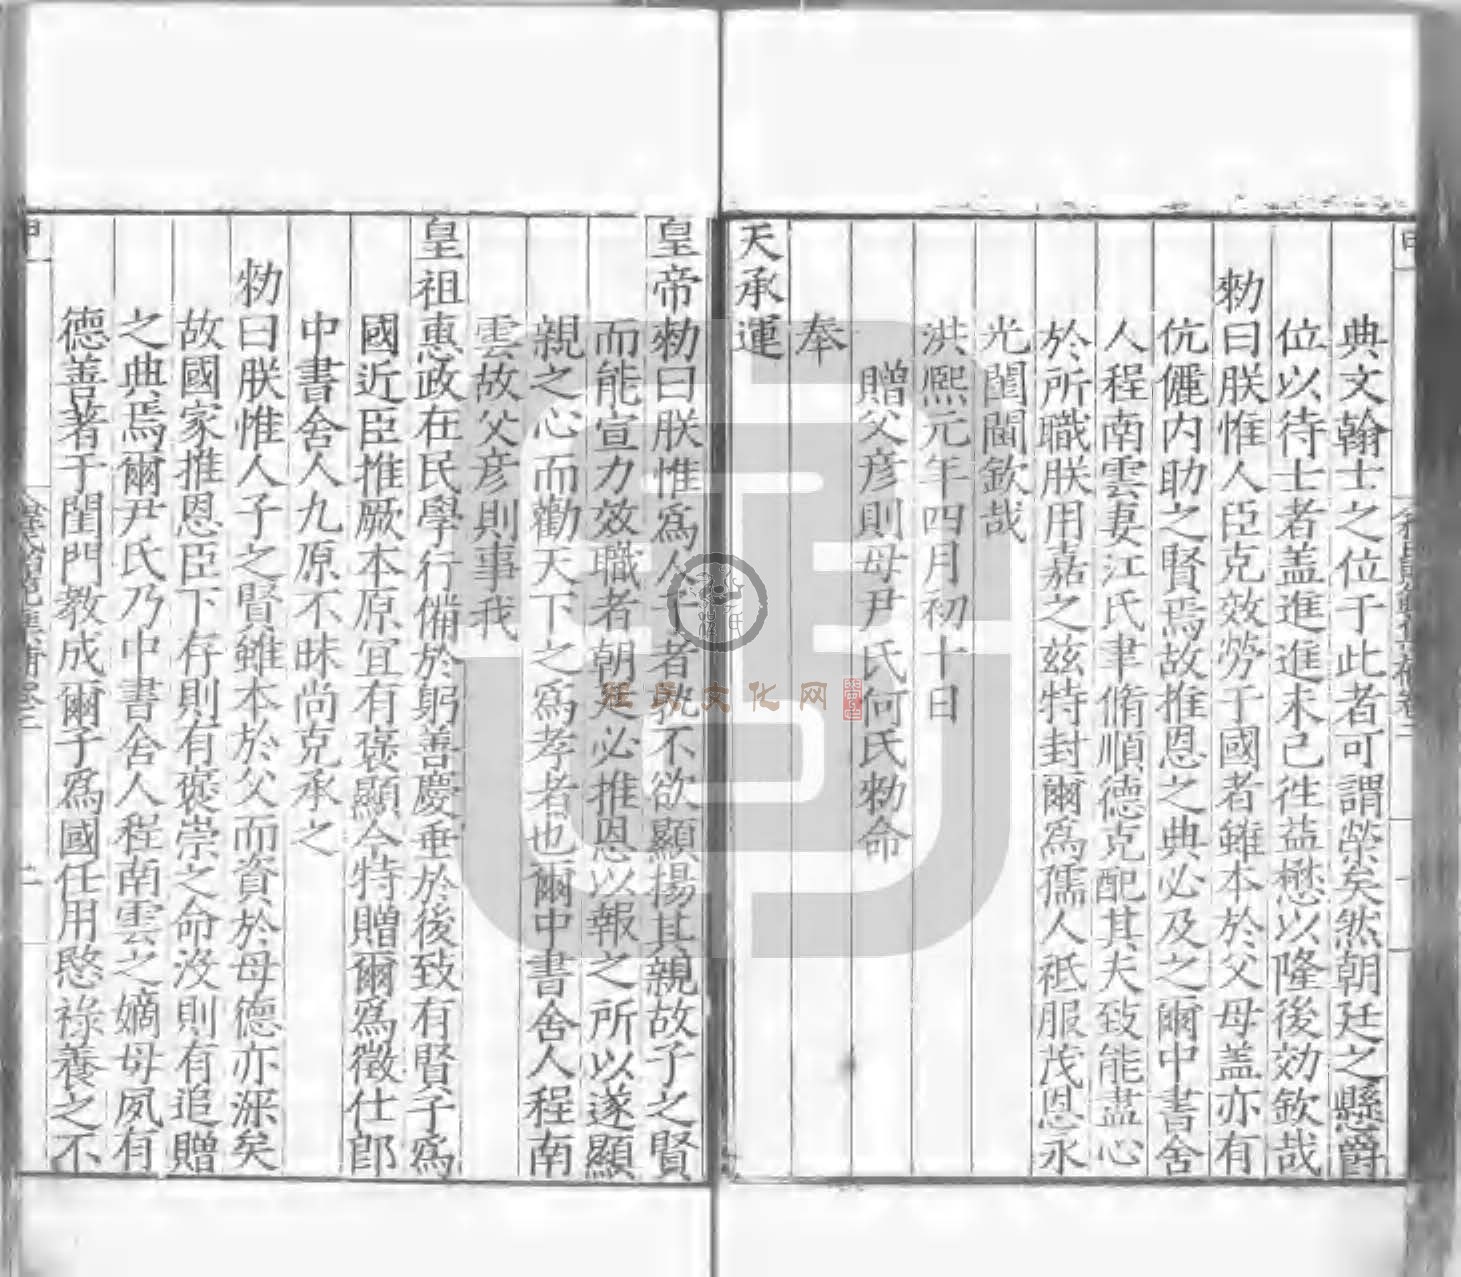 典文翰士之位于此者可謂榮矣然朝廷之懸爵
位以待士者盖進進未已徃益懋以隆後効欽哉
勑曰朕惟人臣克效勞于國者雖本於父母盖亦有
伉儷内助之賢焉故推恩之典必及之爾中書舍
人程南雲妻江氏聿脩順德克配其夫致能盡心
於所職朕用嘉之兹特封爾爲孺人祇服茂恩永
光閨閫欽哉
洪熙元年四月初十日
贈父彦則母尹氏何氏勑命
奉
天承運
皇帝勑曰朕惟爲人子者孰不欲顯揚其親故子之賢
而能宣力效職者朝廷必推恩以報之所以遂顯
親之心而勸天下之爲孝者也爾中書舍人程南
雲故父彦則事我
皇祖惠政在民學行備於躬善慶垂於後致有賢子爲
國近臣推厥本原宜有褒顯今特贈爾爲徵仕郎
中書舍人九原不昧尚克承之
勑曰朕惟人子之賢雖本於父而資於母德亦深矣
故國家推恩臣下存則有褒崇之命没則有追贈
之典焉爾尹氏乃中書舍人程南雲之嫡母夙有
德善著于閨門教成爾子爲國任用愍禄養之不
姓氏文化网